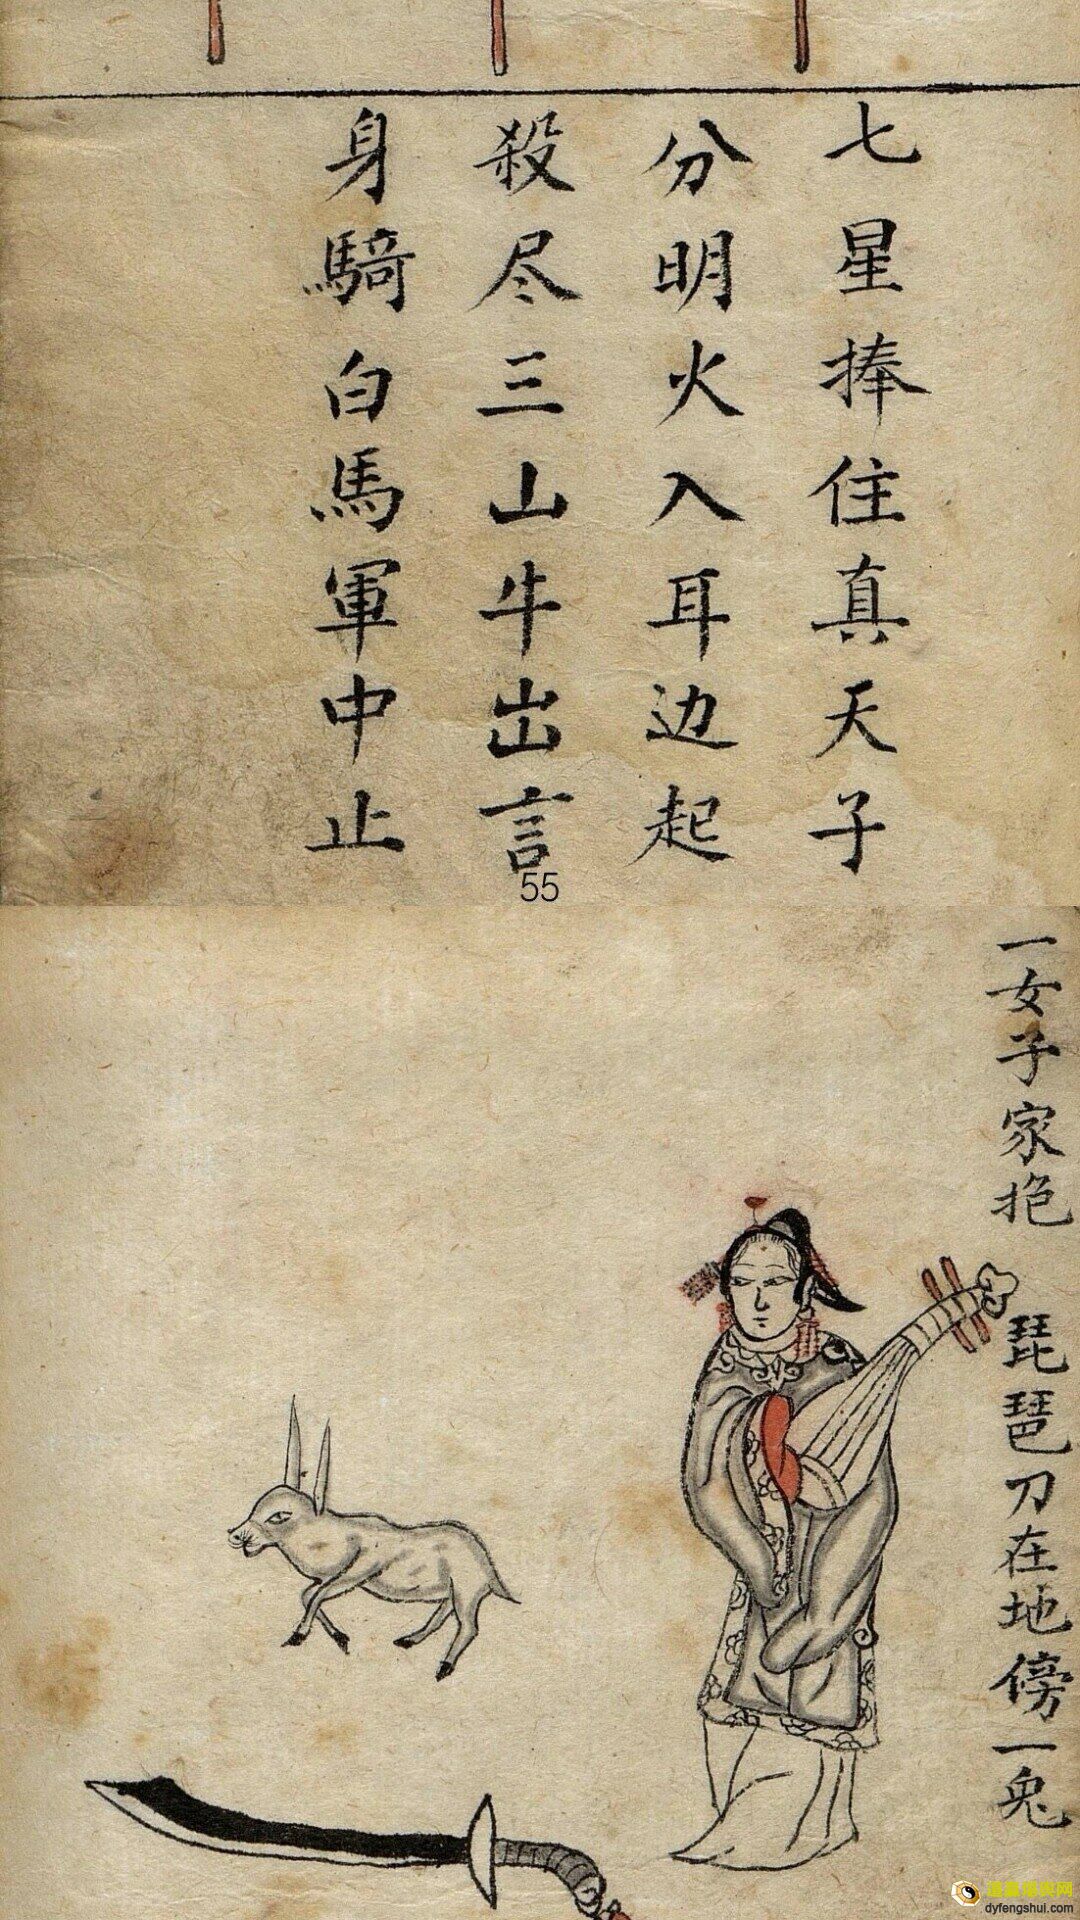 七星捧住真天子
分明火入耳边起
殺尽三山牛出言
身騎白馬軍中止
55
一女子家抱琵琶刀在地傍一兔
dyfengshui.com